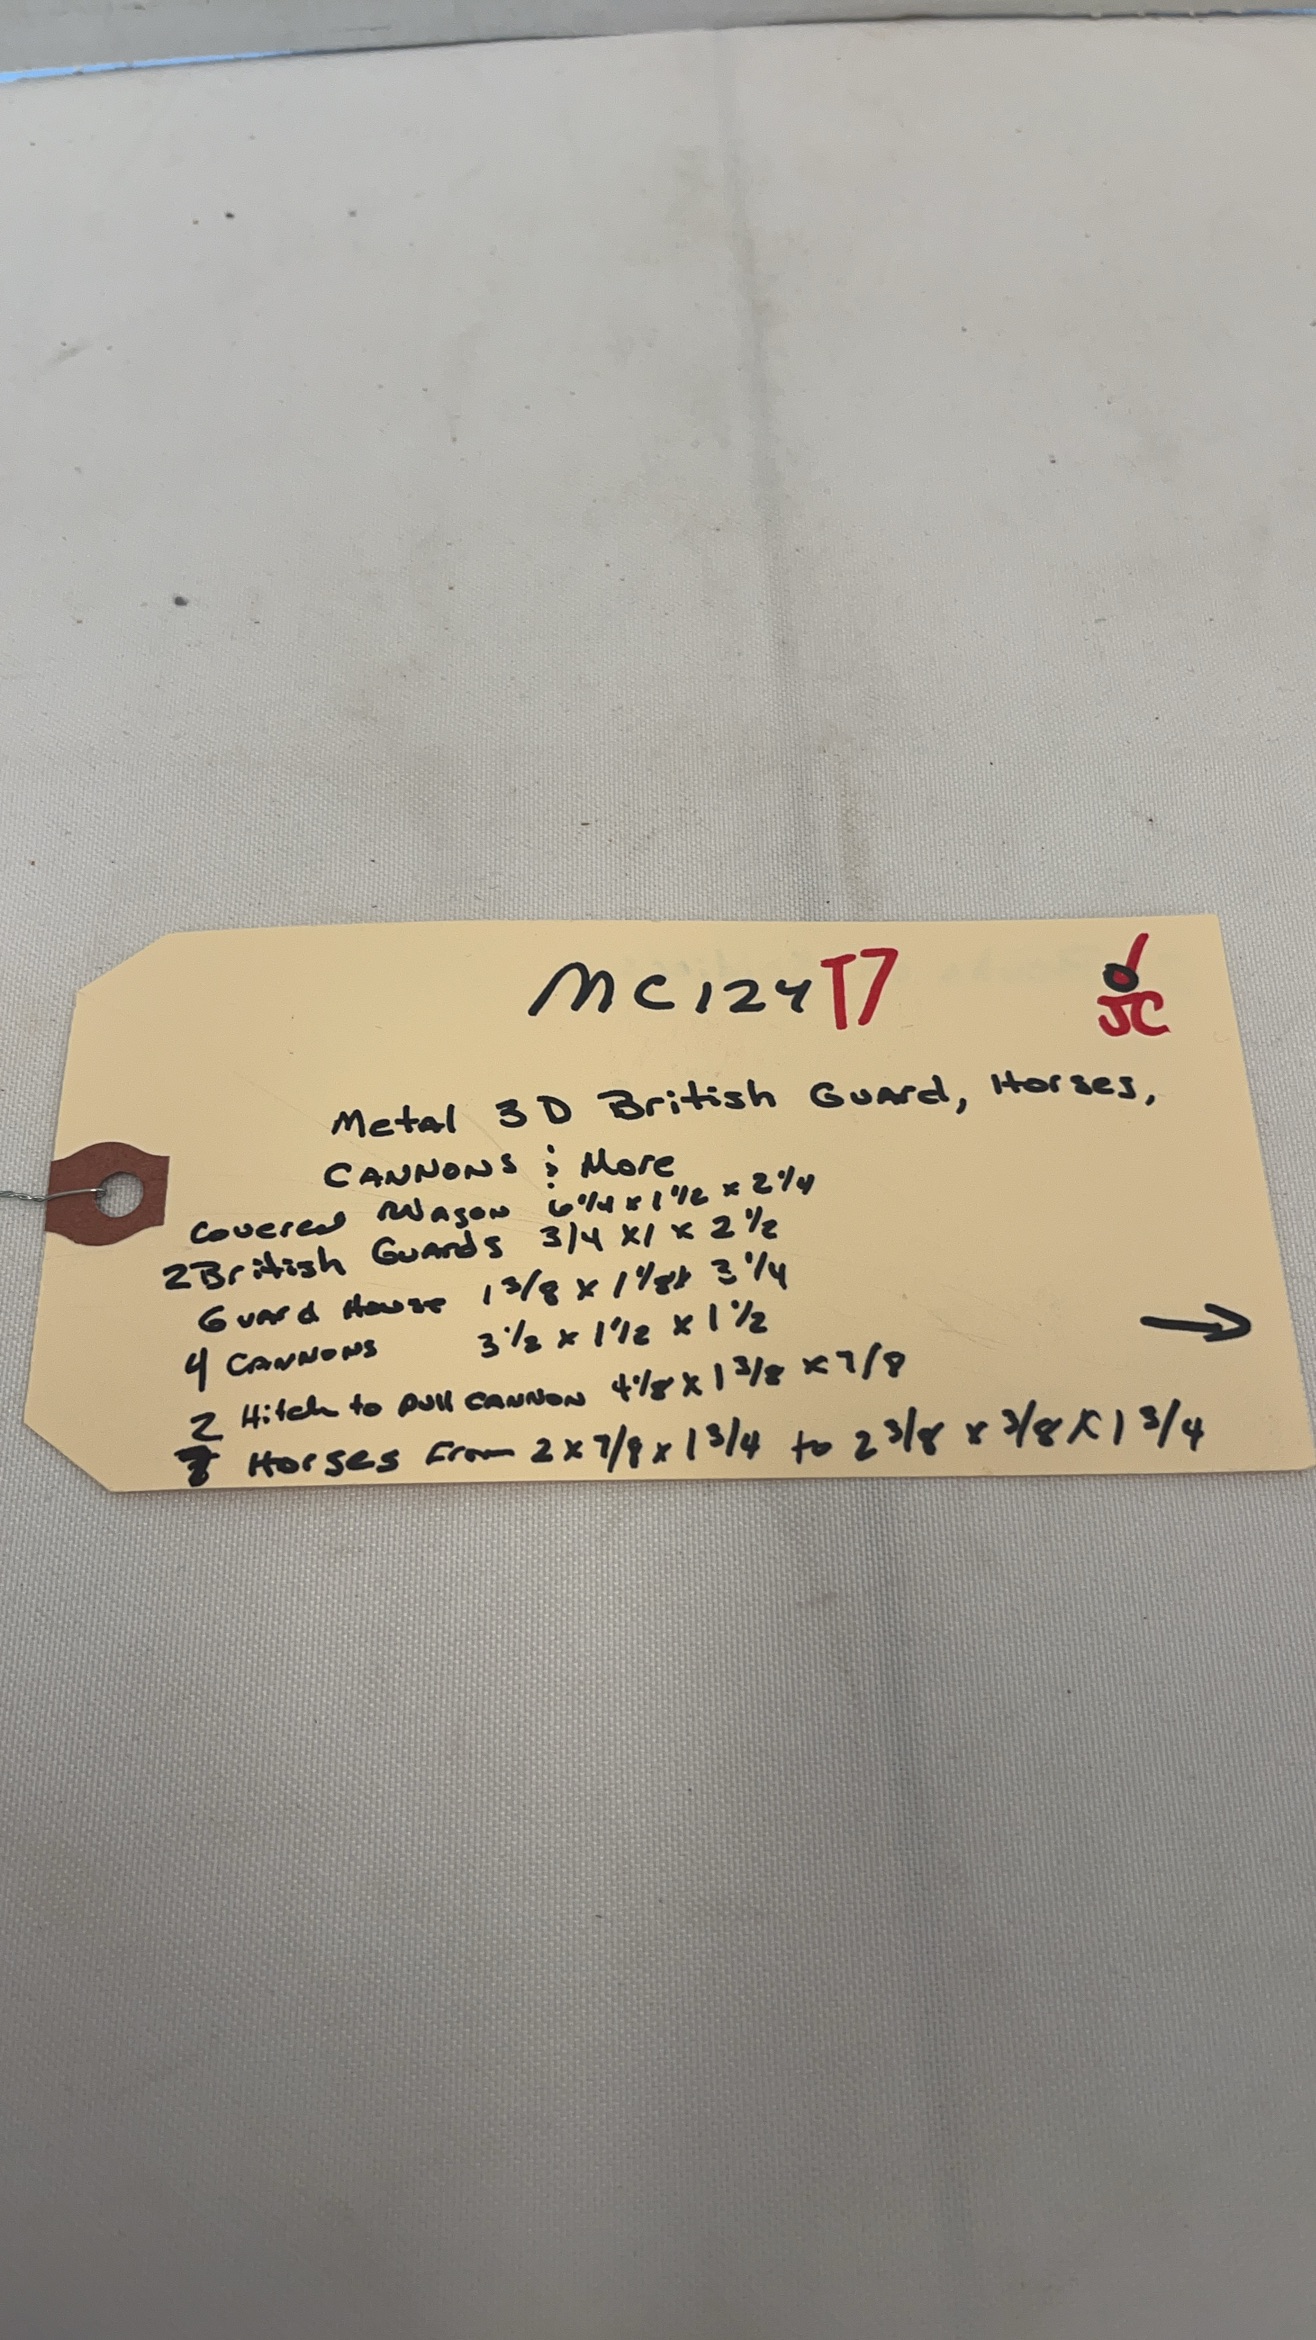 MC124 T7
JC
Metal 3D British Guard, Horses,
CANNONS & More
Covered Wagon 6 1/4 x 1 1/2 x 2 1/4
2 British Guards 3/4 x 1 x 2 1/2
Guard House 1 3/8 x 1 1/8 x 3 1/4
4 CANNONS 3 1/2 x 1 1/2 x 1 1/2
2 Hitch to pull CANNON 4 1/8 x 1 3/8 x 7/8
Horses From 2 x 7/8 x 1 3/4 to 2 3/8 x 3/8 x 1 3/4